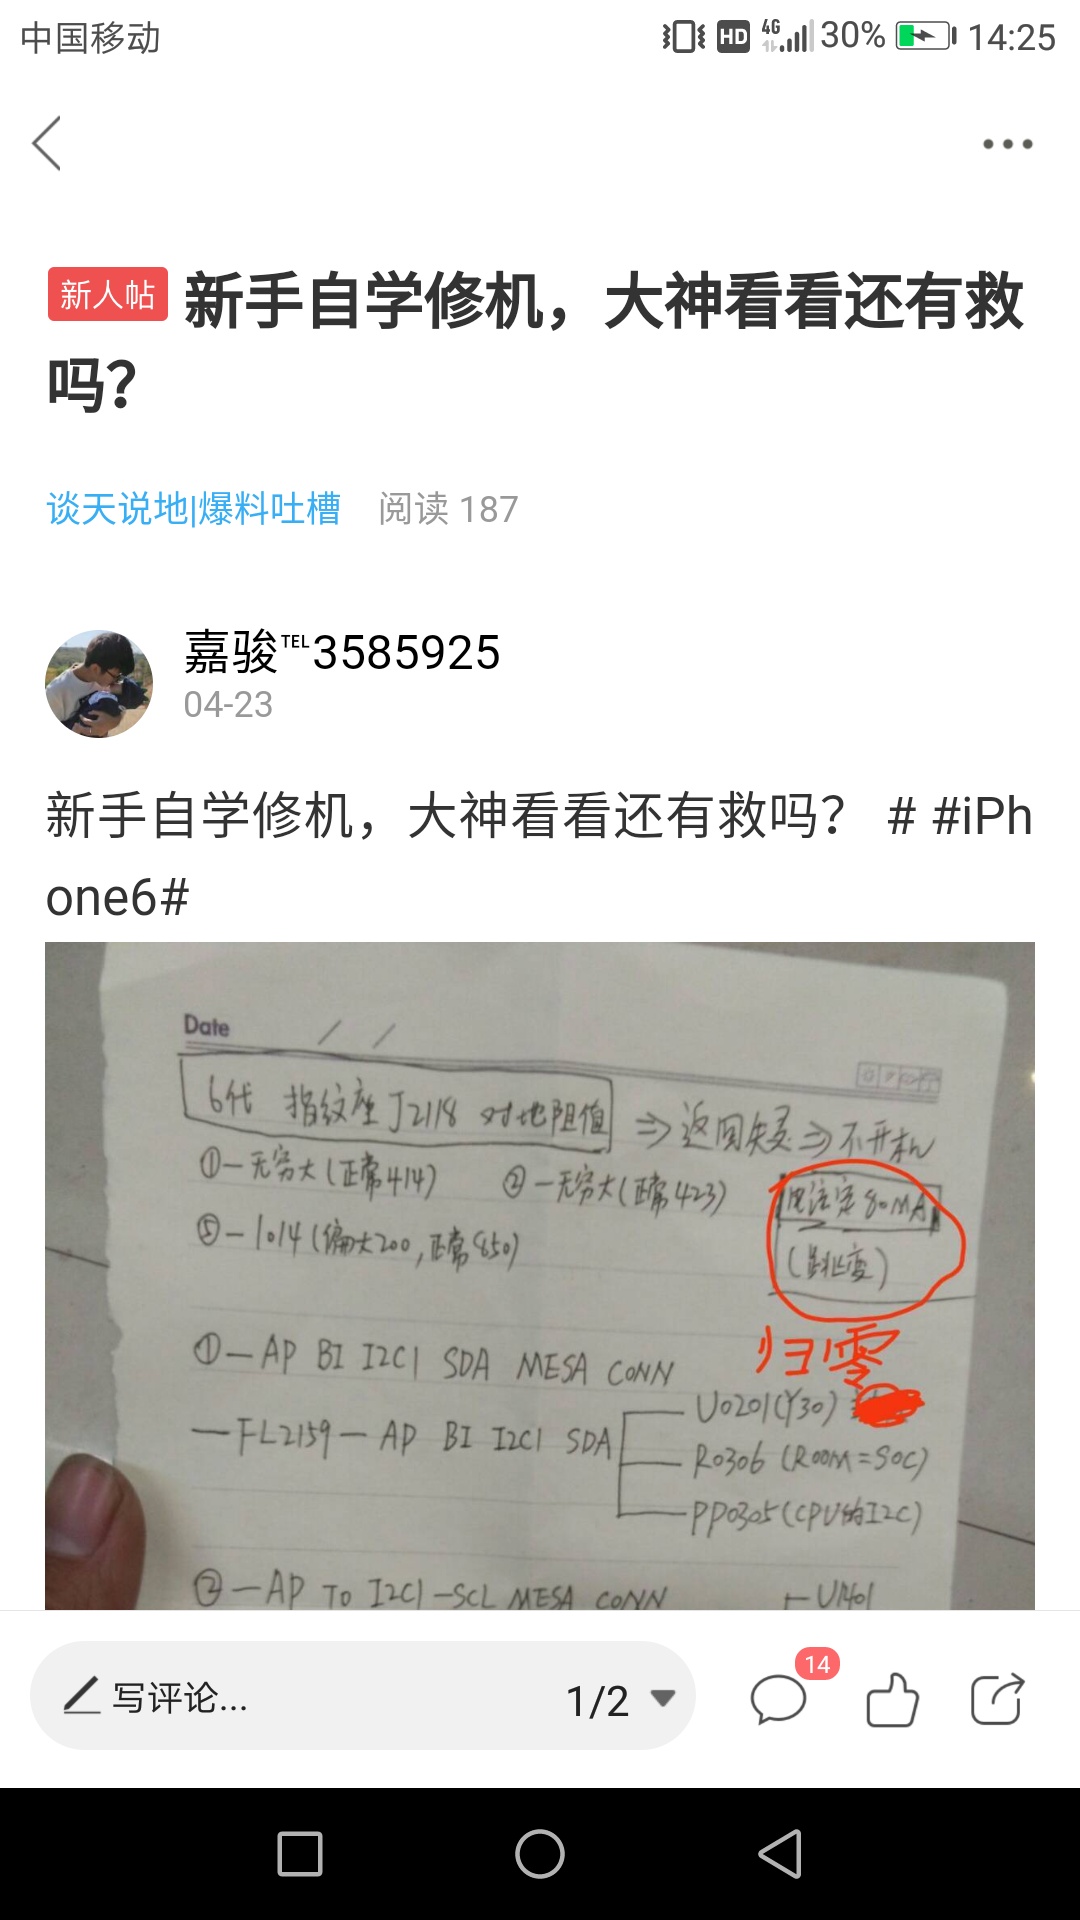 中国移动 HD 4G 30% 14:25
新人帖 新手自学修机，大神看看还有救
吗？
谈天说地|爆料吐槽 阅读 187
嘉骏℡3585925
04-23
新手自学修机，大神看看还有救吗？ # #iPh
one6#
Date / /
6代 指纹座J2118 对地阻值 ⇒返回失灵⇒不开机
①—无穷大(正常414) ②—无穷大(正常423)
电流定80MA
⑤—1014(偏大200,正常850)
(跳变)
归零
①—AP BI I2C1 SDA MESA CONN
U0201(Y30)
—FL2159—AP BI I2C1 SDA
R0306 (ROOM=SOC)
PP0305(CPU的I2C)
②—AP TO I2C1-SCL MESA CONN
U1401
写评论... 1/2 14